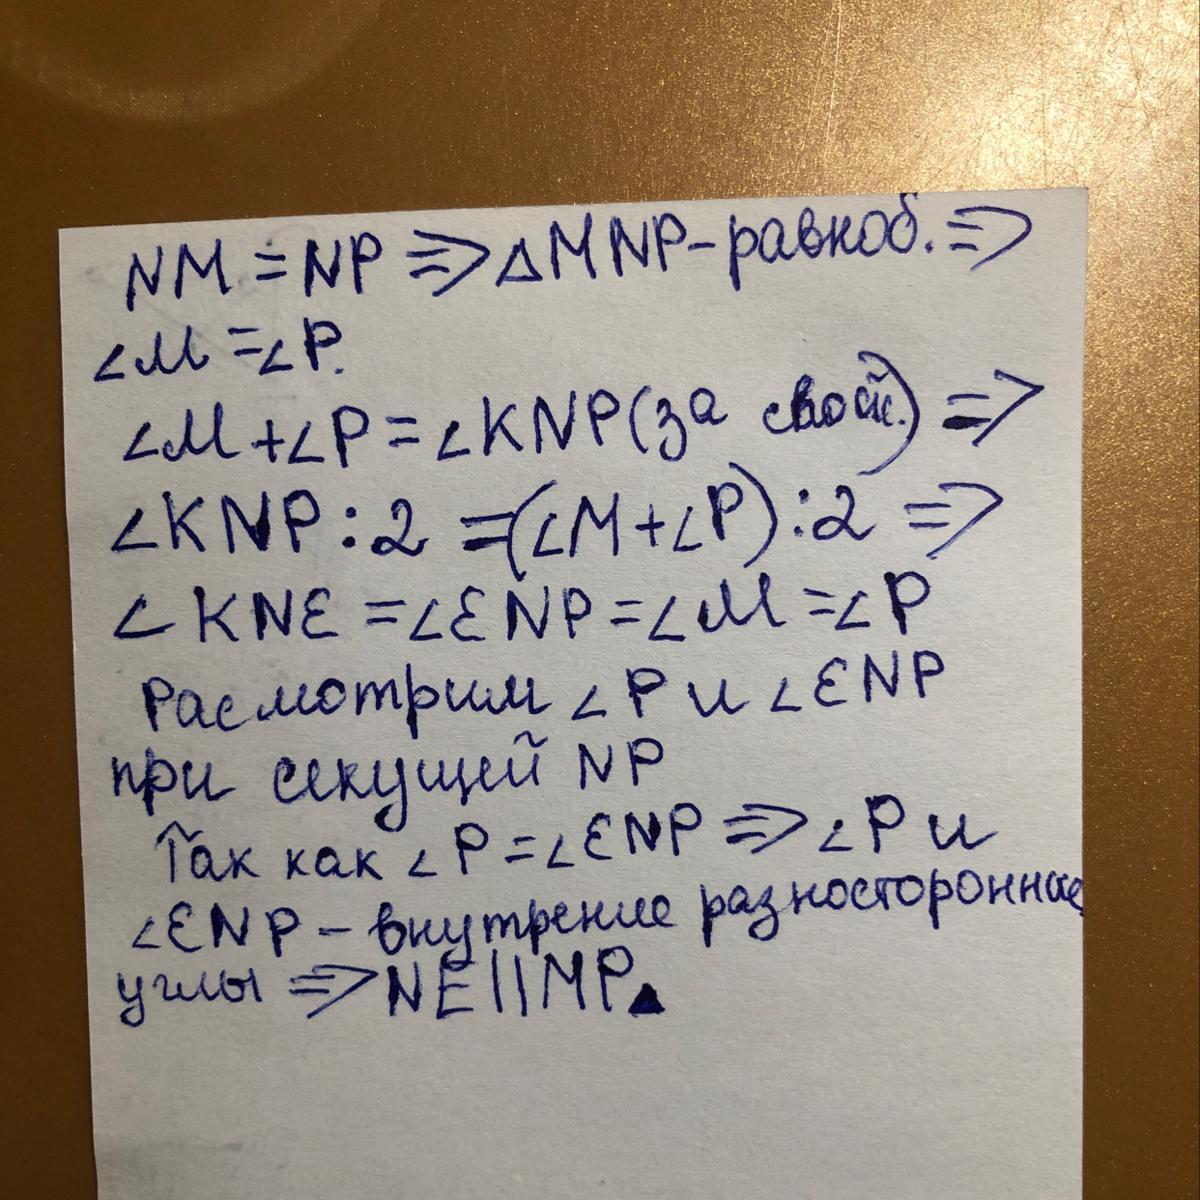 NM = NP => △MNP - равноб. =>
∠M = ∠P.
∠M + ∠P = ∠KNP (за свой.) =>
∠KNP : 2 = (∠M + ∠P) : 2 =>
∠KNE = ∠ENP = ∠M = ∠P
Расмотрим ∠P и ∠ENP
при секущей NP
Так как ∠P = ∠ENP => ∠P и
∠ENP - внутрение разносторонние
углы => NE || MP ▲